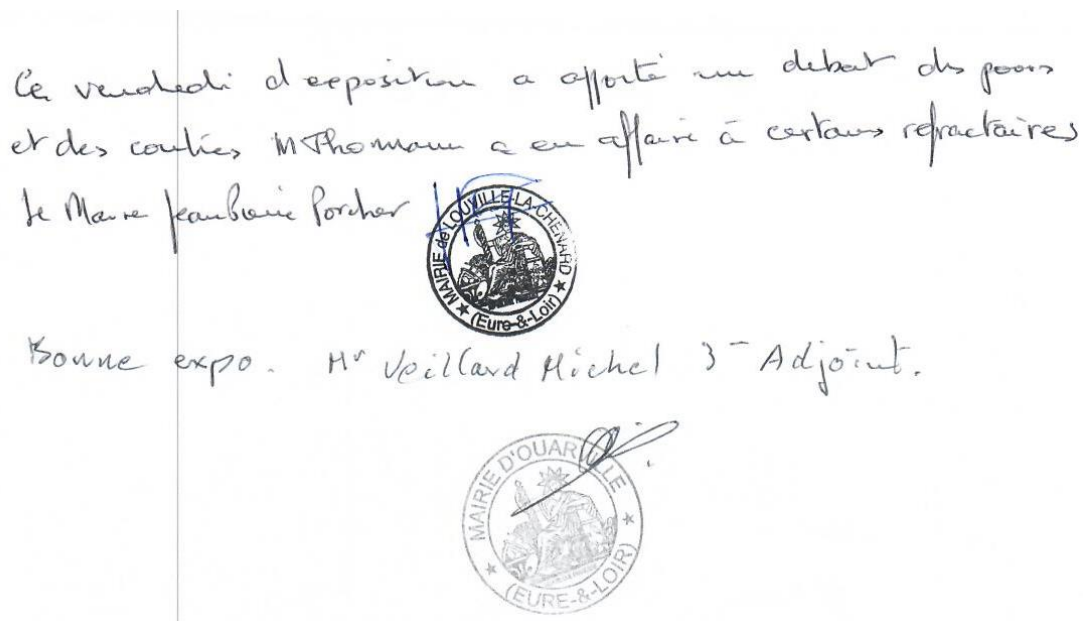 Ce vendredi d exposition a apporté un debat des pours
et des contres M Thomann a eu affaire à certains refractaires
Le Maire Jean Pierre Porcher
MAIRIE de LOUVILLE-LA-CHENARD
(Eure-&-Loir)
Bonne expo. Mr Veillard Michel 3 Adjoint.
MAIRIE D'OUARVILLE
(EURE-&-LOIR)